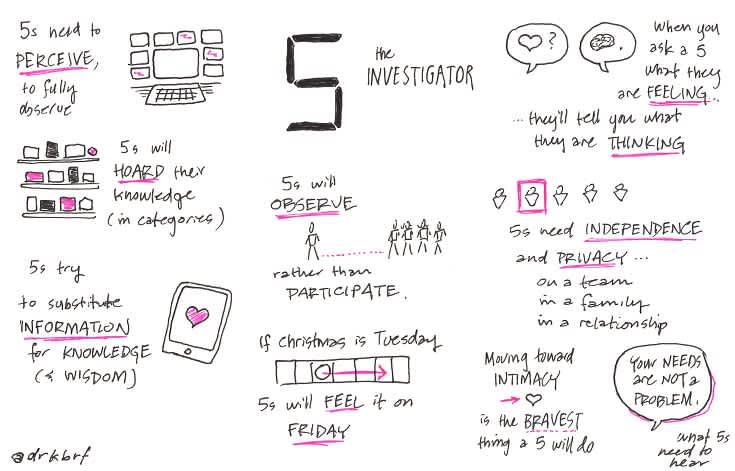 5s need to
PERCEIVE,
to fully
observe
5s will
HOARD their
knowledge
(in categories)
5s try
to substitute
INFORMATION
for KNOWLEDGE
(& WISDOM)
@drkbrf
5
the
INVESTIGATOR
5s will
OBSERVE
rather than
PARTICIPATE.
If Christmas is Tuesday
5s will FEEL it on
FRIDAY
?
When you
ask a 5
what they
are FEELING...
...they'll tell you what
they are THINKING
5s need INDEPENDENCE
and PRIVACY...
on a team
in a family
in a relationship
Moving toward
INTIMACY
is the BRAVEST
thing a 5 will do
YOUR NEEDS
are NOT a
PROBLEM.
what 5s
need to
hear